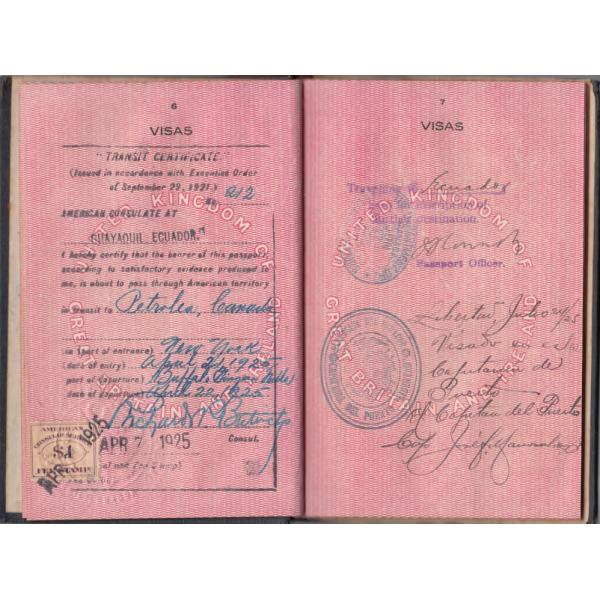 6
VISAS
"TRANSIT CERTIFICATE."
(Issued in accordance with Executive Order
of September 22, 1921.)
No. 212
AMERICAN CONSULATE AT
GUAYAQUIL ECUADOR.
I hereby certify that the bearer of this passport,
according to satisfactory evidence produced to
me, is about to pass through American territory
in transit to Petrolea, Canada
in (port of entrance) New York
(date of entry) April 21, 1925
(port of departure) Buffalo
(date of departure) April 22, 1925
APR 7 1925
Consul.
AMERICAN
CONSULAR SERVICE
$1
FEE STAMP
APR 1925
UNITED KINGDOM OF
GREAT BRITAIN AND IRELAND
7
VISAS
Travelling to Ecuador
destination
Passport Officer.
UNITED KINGDOM OF
GREAT BRITAIN AND IRELAND
Libertad Julio 24/25
Visado en esta
Capitania de
Puerto
Capitan del Puerto